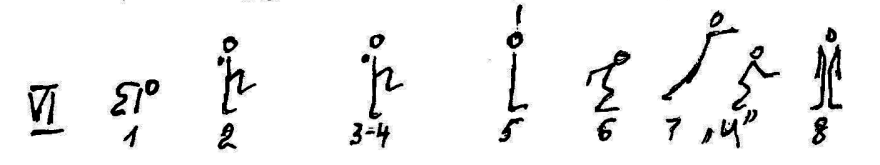 VI
1 2 3-4 5 6 7 „И” 8